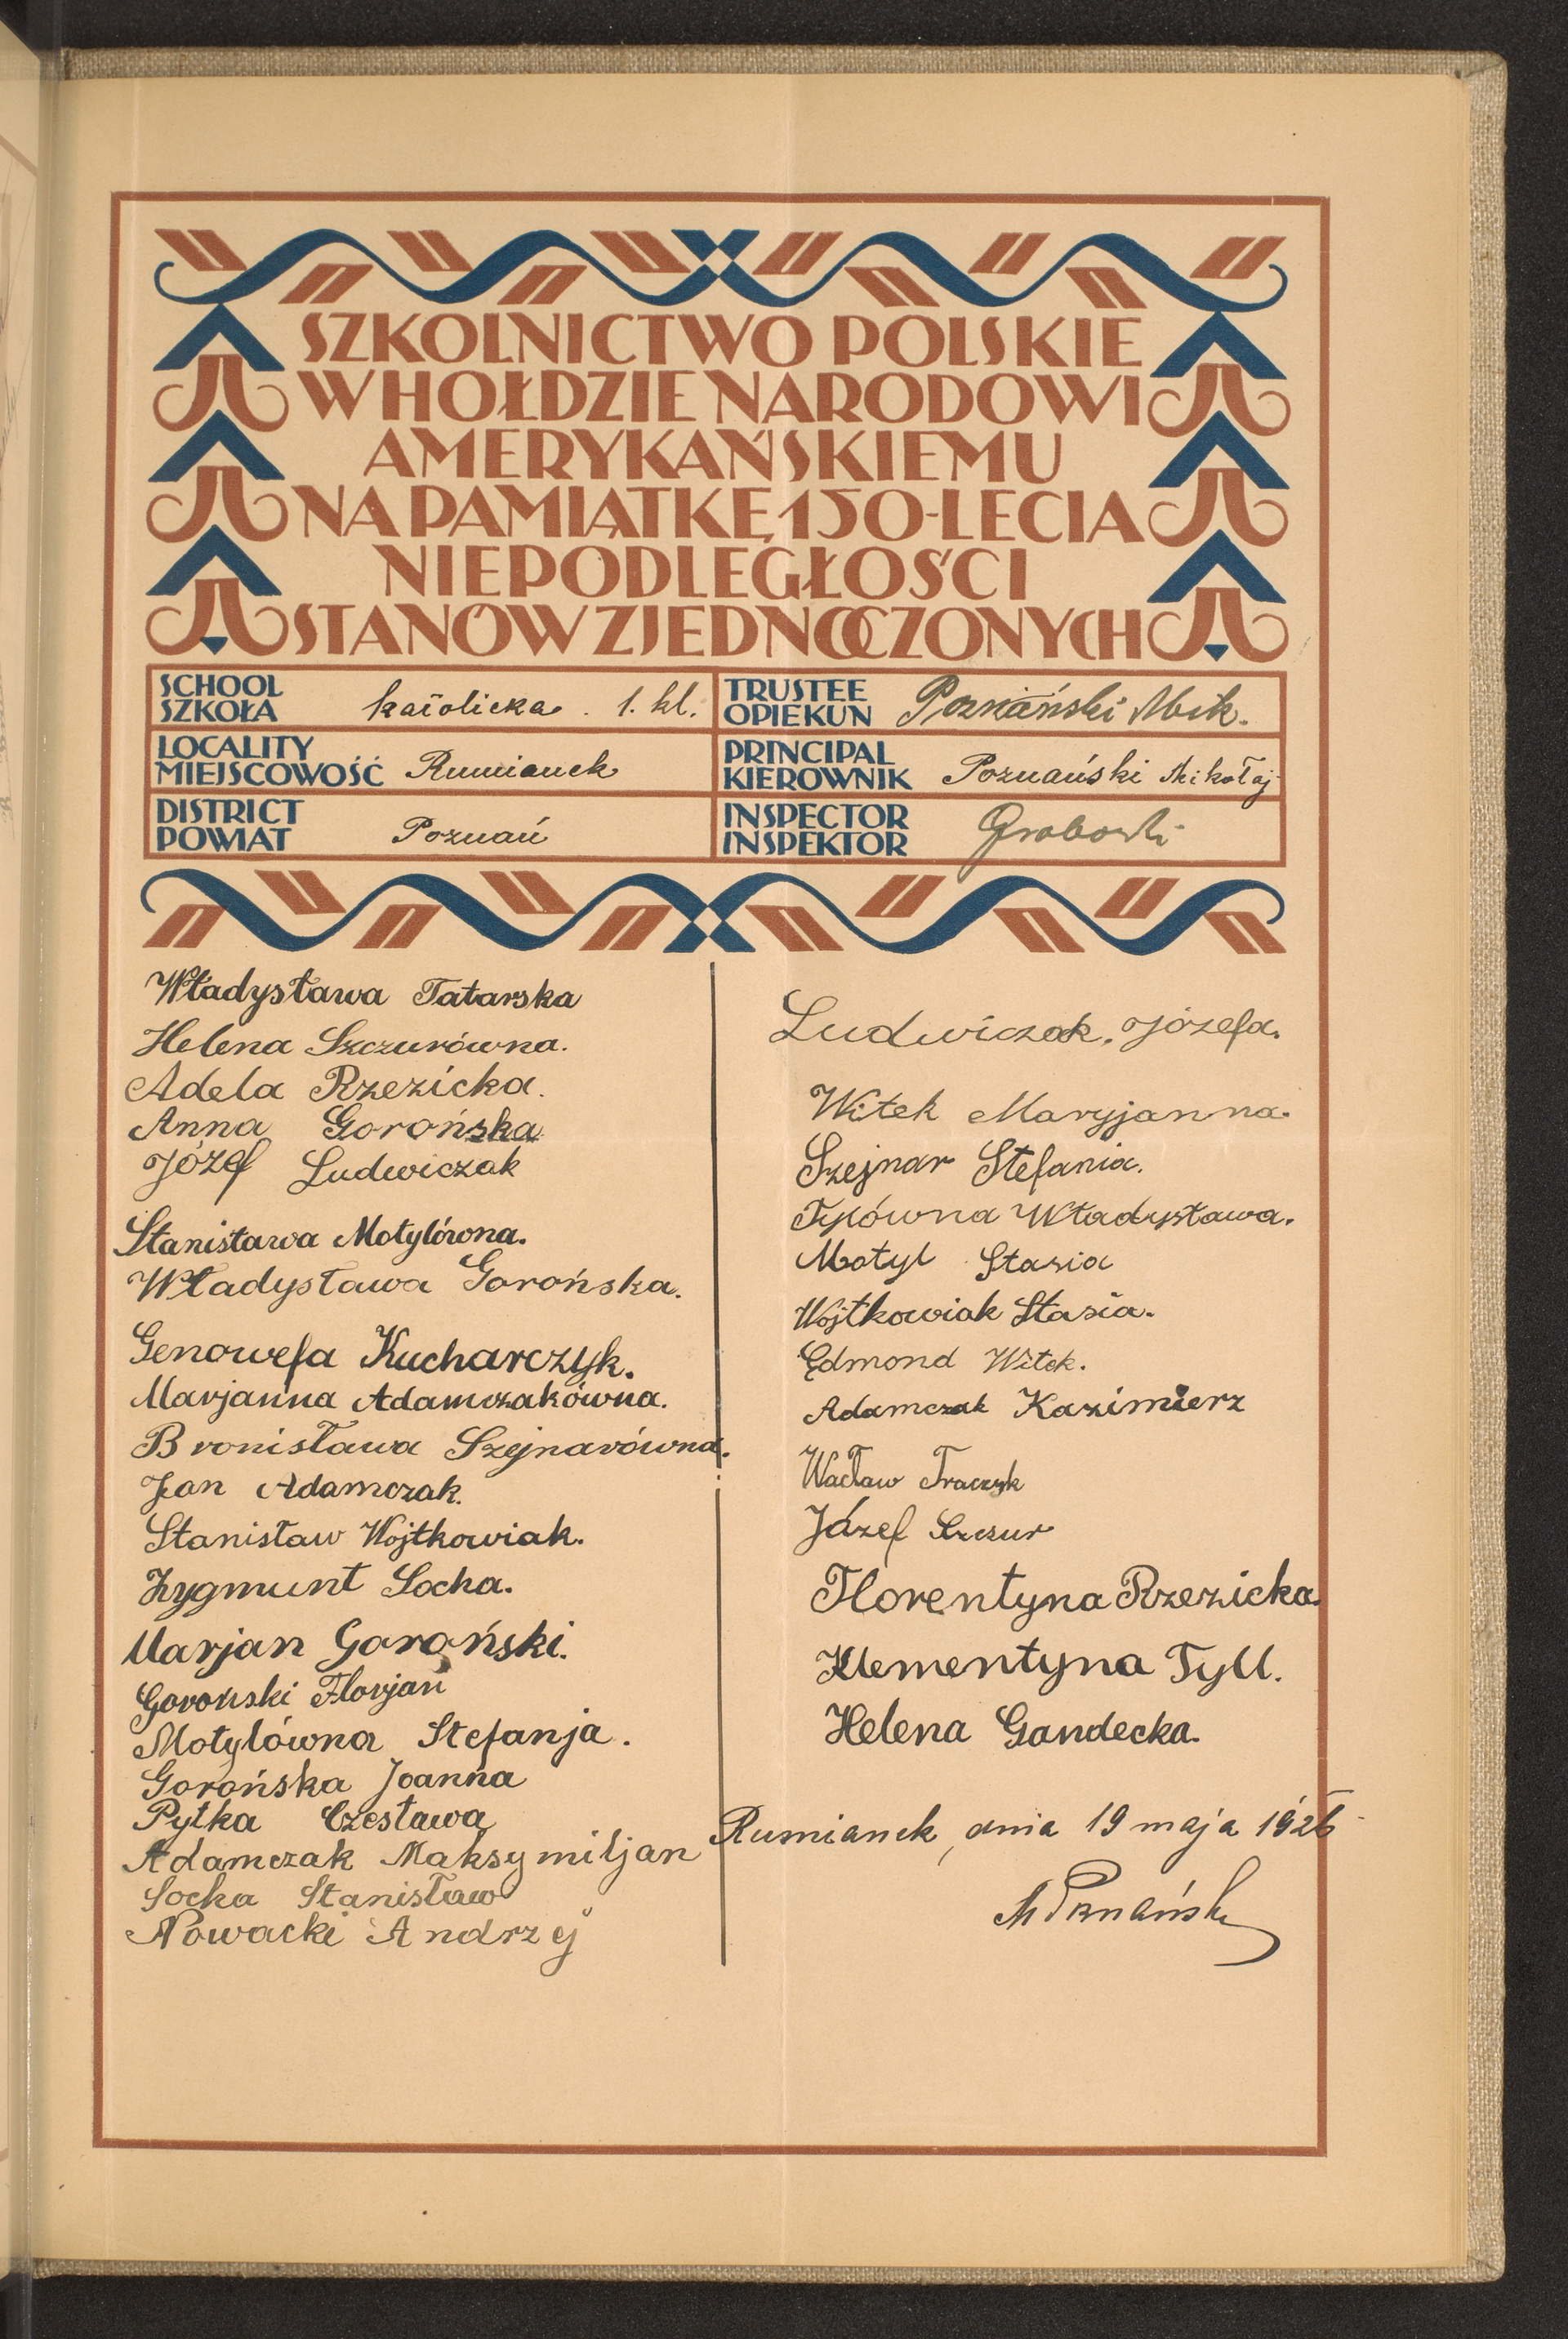 SZKOLNICTWO POLSKIE
W HOŁDZIE NARODOWI
AMERYKAŃSKIEMU
NA PAMIĄTKĘ 150-LECIA
NIEPODLEGŁOŚCI
STANÓW ZJEDNOCZONYCH
SCHOOL
SZKOŁA
katolicka. 1. kl.
TRUSTEE
OPIEKUN
Poznański Mik.
LOCALITY
MIEJSCOWOŚĆ
Rumianek
PRINCIPAL
KIEROWNIK
Poznański Mikołaj
DISTRICT
POWIAT
Poznań
INSPECTOR
INSPEKTOR
Grabowski
Władysława Tatarska
Helena Szczurówna.
Adela Rzezicka.
Anna Gorońska
Józef Ludwiczak
Stanisława Motylówna.
Władysława Gorońska.
Genowefa Kucharczyk.
Marjanna Adamczakówna.
Bronisława Szejnarówna.
Jan Adamczak.
Stanisław Wojtkowiak.
Zygmunt Socha.
Marjan Goroński.
Goroński Florjan
Motylówna Stefanja.
Gorońska Joanna
Pytka Czesława
Adamczak Maksymiljan
Socha Stanisław
Nowacki Andrzej
Ludwiczak, Józefa.
Witek Maryjanna.
Szejnar Stefania.
Tylówna Władysława.
Motyl Stasia
Wojtkowiak Stasia.
Edmond Witek.
Adamczak Kazimierz
Wacław Traczyk
Józef Szczur
Florentyna Rzezicka.
Klementyna Tyll.
Helena Gandecka.
Rumianek, dnia 19 maja 1926
M Poznański